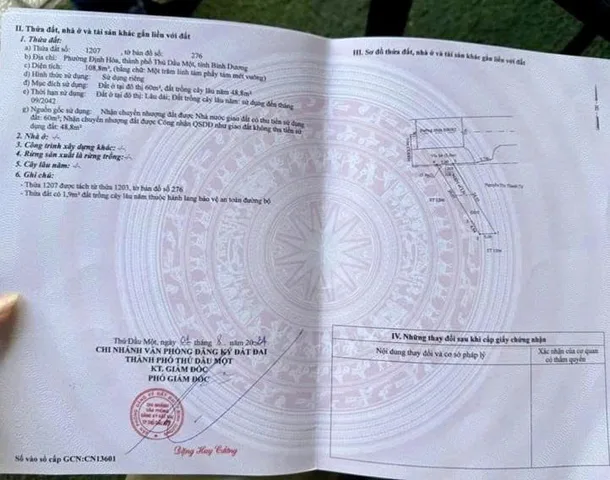 II. Thửa đất, nhà ở và tài sản khác gắn liền với đất
1. Thửa đất:
a) Thửa đất số: 1207 , tờ bản đồ số: 276
b) Địa chỉ: Phường Định Hòa, thành phố Thủ Dầu Một, tỉnh Bình Dương
c) Diện tích: 108,8m², (bằng chữ: Một trăm linh tám phẩy tám mét vuông)
d) Hình thức sử dụng: Sử dụng riêng
đ) Mục đích sử dụng: Đất ở tại đô thị 60m²; đất trồng cây lâu năm 48,8m²
e) Thời hạn sử dụng: Đất ở tại đô thị: Lâu dài; Đất trồng cây lâu năm: sử dụng đến tháng
09/2042
g) Nguồn gốc sử dụng: Nhận chuyển nhượng đất được Nhà nước giao đất có thu tiền sử dụng
đất: 60m²; Nhận chuyển nhượng đất được Công nhận QSDĐ như giao đất không thu tiền sử
dụng đất: 48,8m²
2. Nhà ở: -/-
3. Công trình xây dựng khác: -/-
4. Rừng sản xuất là rừng trồng: -/-
5. Cây lâu năm: -/-
6. Ghi chú:
- Thửa 1207 được tách từ thửa 1203, tờ bản đồ số 276
- Thửa đất có 1,9m² đất trồng cây lâu năm thuộc hành lang bảo vệ an toàn đường bộ
Thủ Dầu Một, ngày tháng năm 20
CHI NHÁNH VĂN PHÒNG ĐĂNG KÝ ĐẤT ĐAI
THÀNH PHỐ THỦ DẦU MỘT
KT. GIÁM ĐỐC
PHÓ GIÁM ĐỐC
Đặng Huy Cường
Số vào sổ cấp GCN:CN13601
III. Sơ đồ thửa đất, nhà ở và tài sản khác gắn liền với đất
IV. Những thay đổi sau khi cấp giấy chứng nhận
Nội dung thay đổi và cơ sở pháp lý
Xác nhận của cơ quan
có thẩm quyền